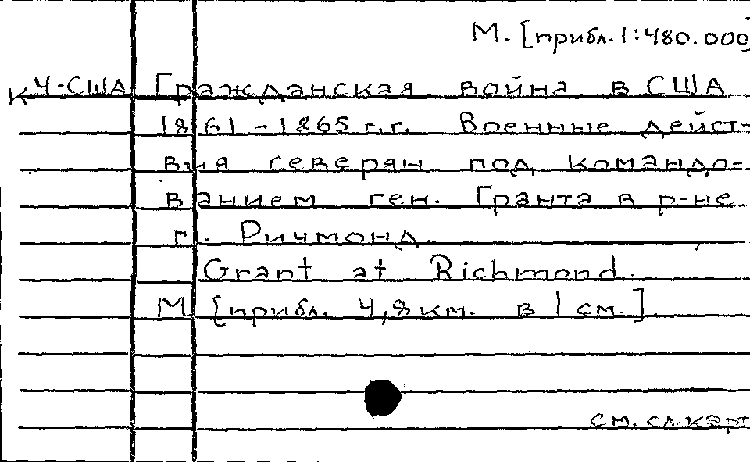 М. [прибл. 1:480.000]
К4-США Гражданская война в США
1861-1865 г.г. Военные дейст-
вия северян под командо-
ванием ген. Гранта в р-не
г. Ричмонд
Grant at Richmond.
М [прибл. 4,8 км. в 1 см.]
см. сл. карт